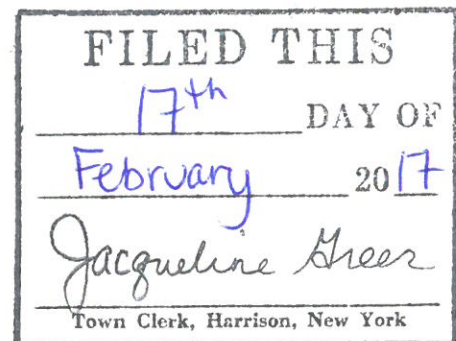 FILED THIS
17th DAY OF
February 2017
Jacqueline Greer
Town Clerk, Harrison, New York